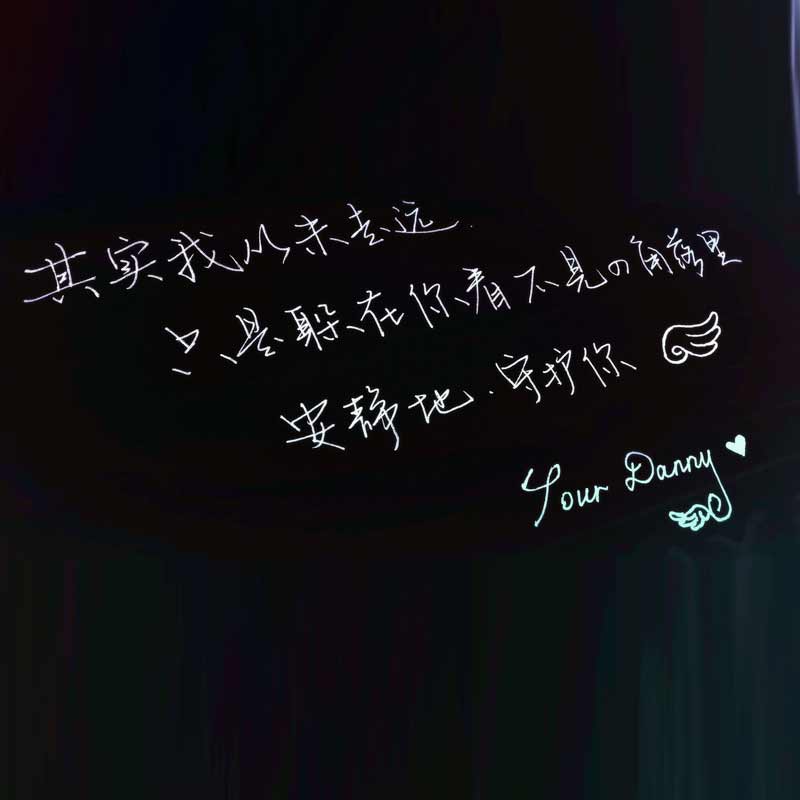 其实我从未走远.
只是躲在你看不见の角落里
安静地.守护你
Your Danny